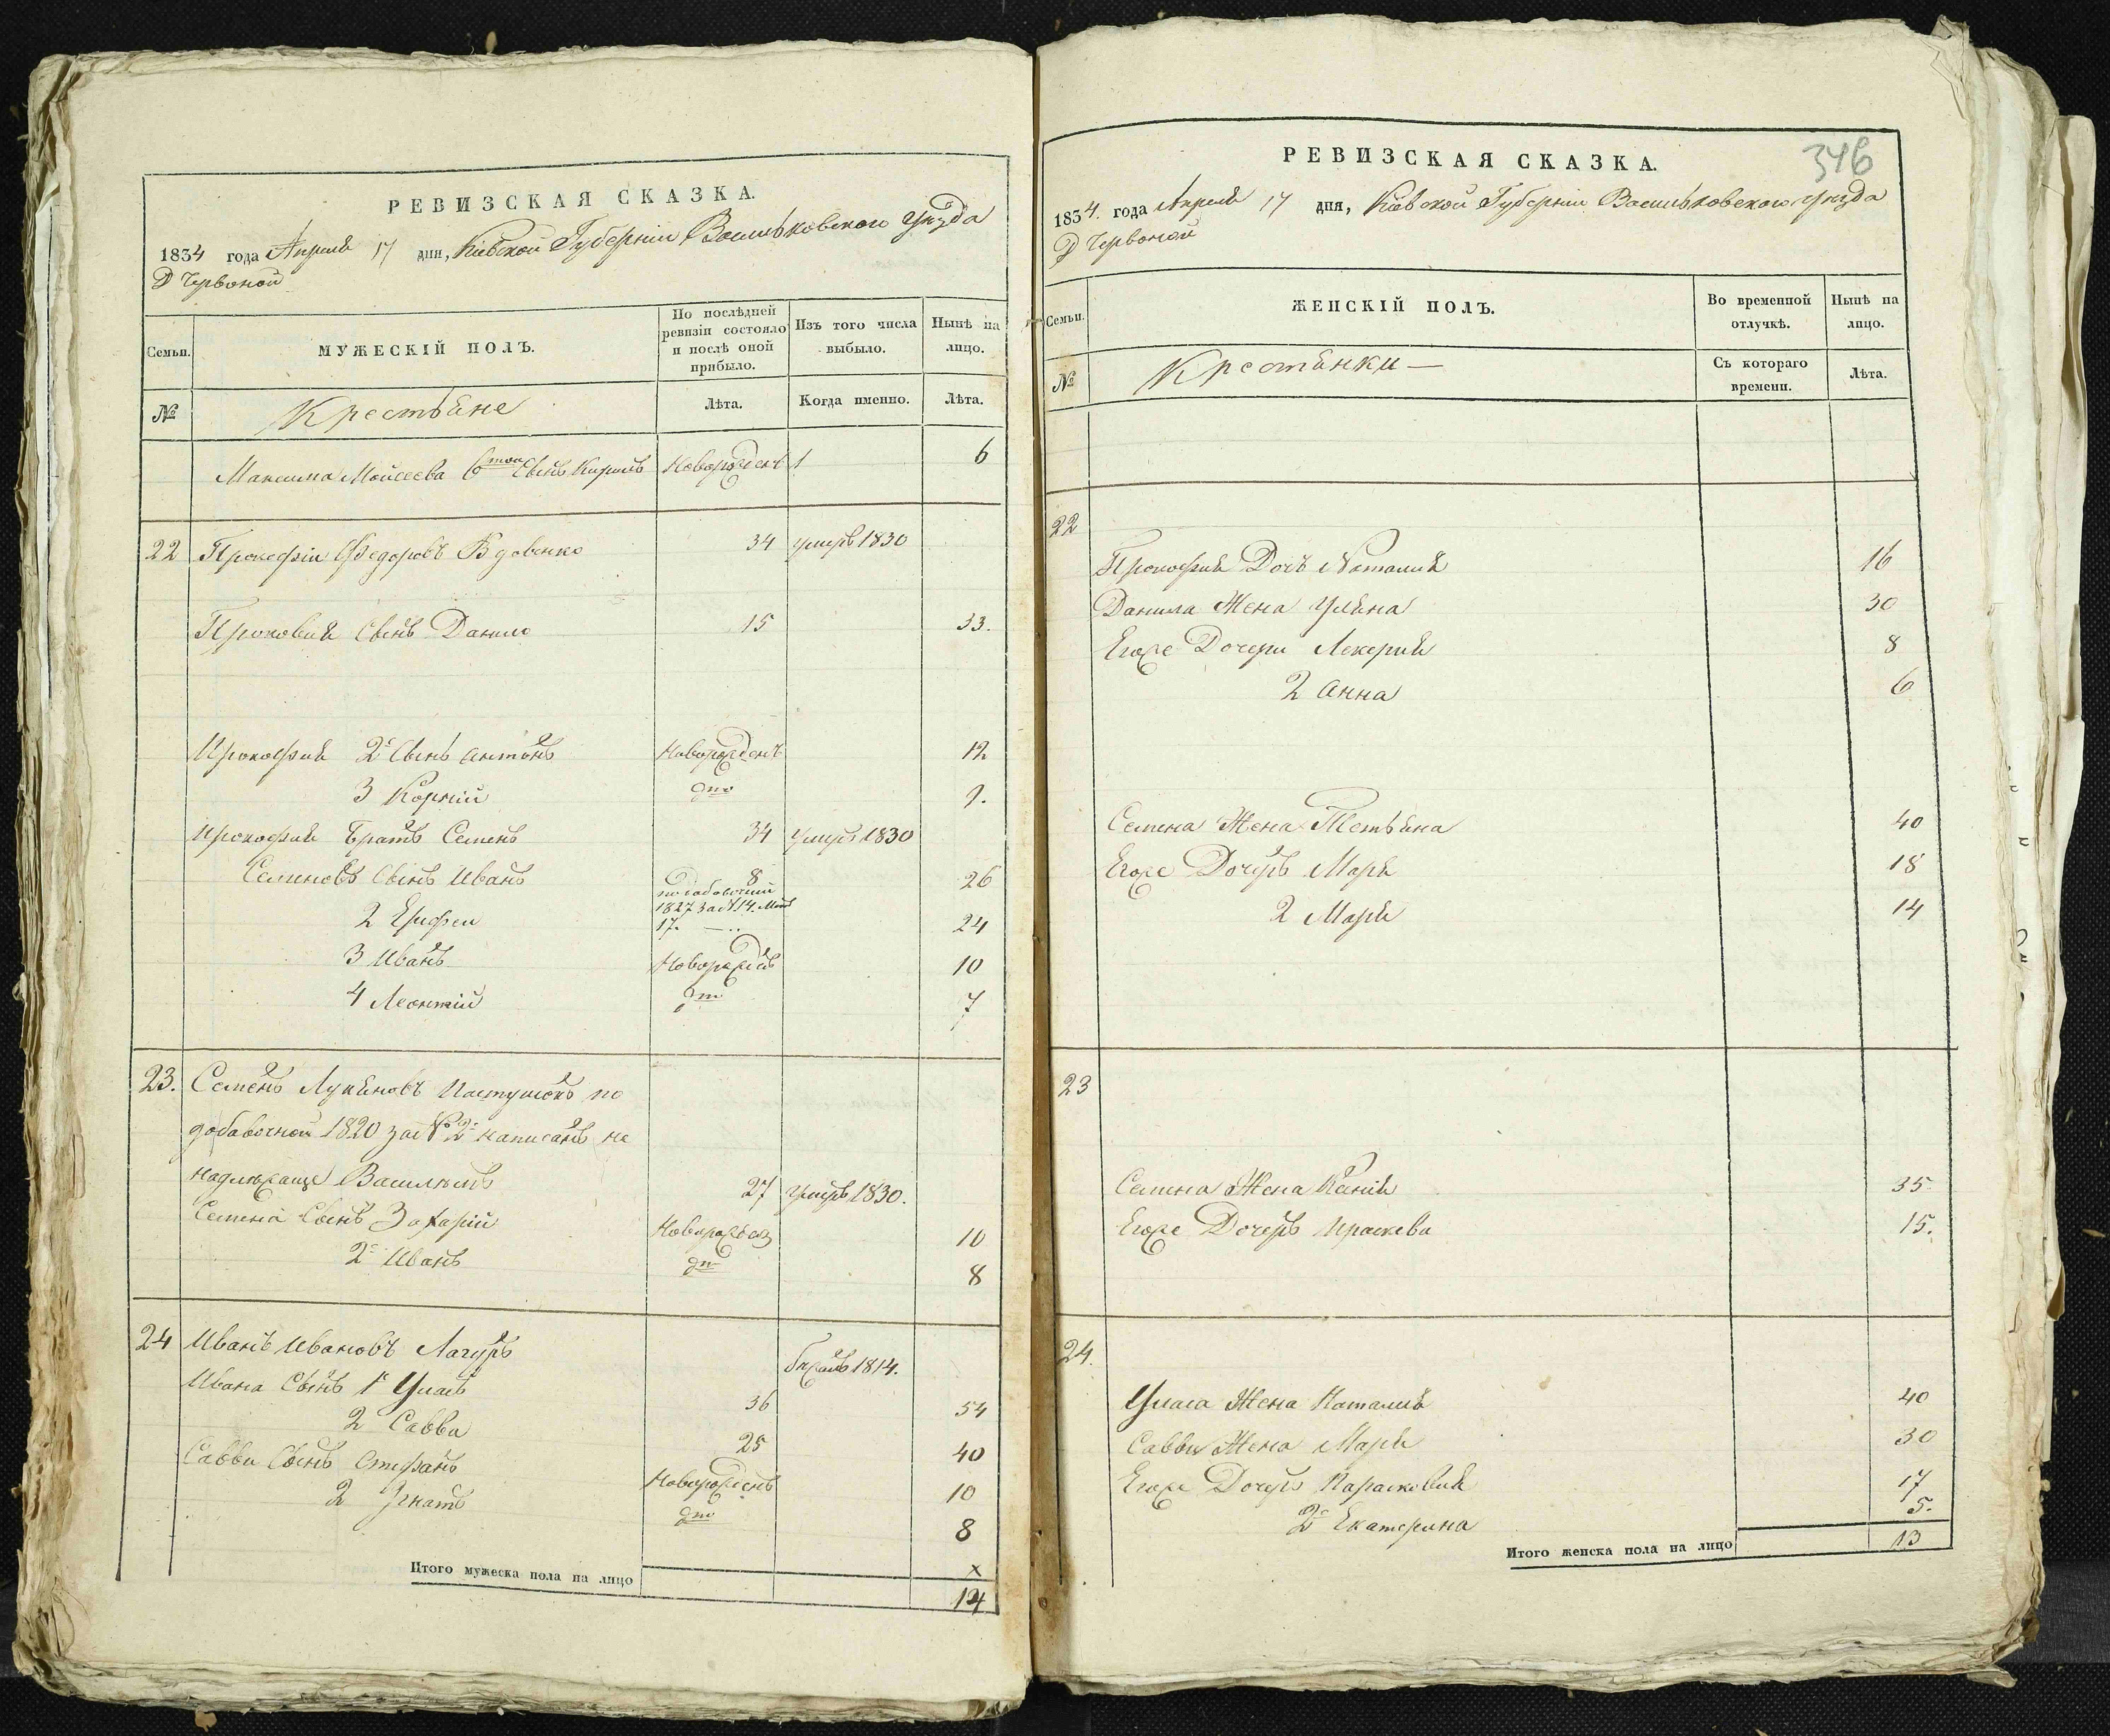 РЕВИЗСКАЯ СКАЗКА.
1834 года Апреля 17 дня, Кіевской Губерніи Васильковского уезда
Д Червоной
Семьи.
МУЖЕСКІЙ ПОЛЪ.
По послѣдней ревизіи состояло и послѣ оной прибыло.
Изъ того числа выбыло.
Нынѣ на лицо.
№
Крестьяне
Лѣта.
Когда именно.
Лѣта.
Максима Мойсеева 6той Сынъ Кирилъ Новорожденъ 6
22 Прокофіи Федоровъ Вдовенко 34 умеръ 1830
Прокофия Сынъ Данило 15 33.
Прокофия 2й Сынъ Антонъ Новорожденъ 12
3 Корній дто 9.
Прокофия Братъ Семенъ 34 умеръ 1830
Семеновъ Сынъ Иванъ 8 26
по добавочній
1827 за №14. Летъ
2 Ерофеи 17. 24
3 Иванъ Новорожденъ 10
4 Леонтій дто 7
23. Семенъ Лукяновъ Пастушокъ по
добавочной 1820 за №2 написанъ не
надлежаще Василемъ 27 умеръ 1830.
Семена Сынъ Захарій Новорожден 10
2й Иванъ дто 8
24 Иванъ Ивановъ Лагуръ бежалъ 1814.
Ивана Сынъ 1й Уласъ 36 54
2 Савва 25 40
Саввы Сынъ Стефанъ Новорожденъ 10
2 Игнатъ дто 8
Итого мужеска пола на лицо 14
346
РЕВИЗСКАЯ СКАЗКА.
1834. года Апреля 17 дня, Кіевской Губерніи Васильковского уезда
Д Червоной
Семьи.
ЖЕНСКІЙ ПОЛЪ.
Во временной отлучкѣ.
Нынѣ на лицо.
№
Крестянки
Съ котораго времени.
Лѣта.
22
Прокофия Дочъ Наталия 16
Данила Жена Уляна 30
Егоже Дочери Лекерия 8
2 Анна 6
Семена Жена Тетьяна 40
Егоже Дочеръ Маря 18
2 Маря 14
23
Семена Жена Ксенія 35
Егоже Дочеръ Праскева 15.
24.
Уласа Жена Наталия 40
Саввы Жена Маря 30
Егоже Дочеръ Парасковия 17
2я Екатерина 5.
Итого женска пола на лицо 13